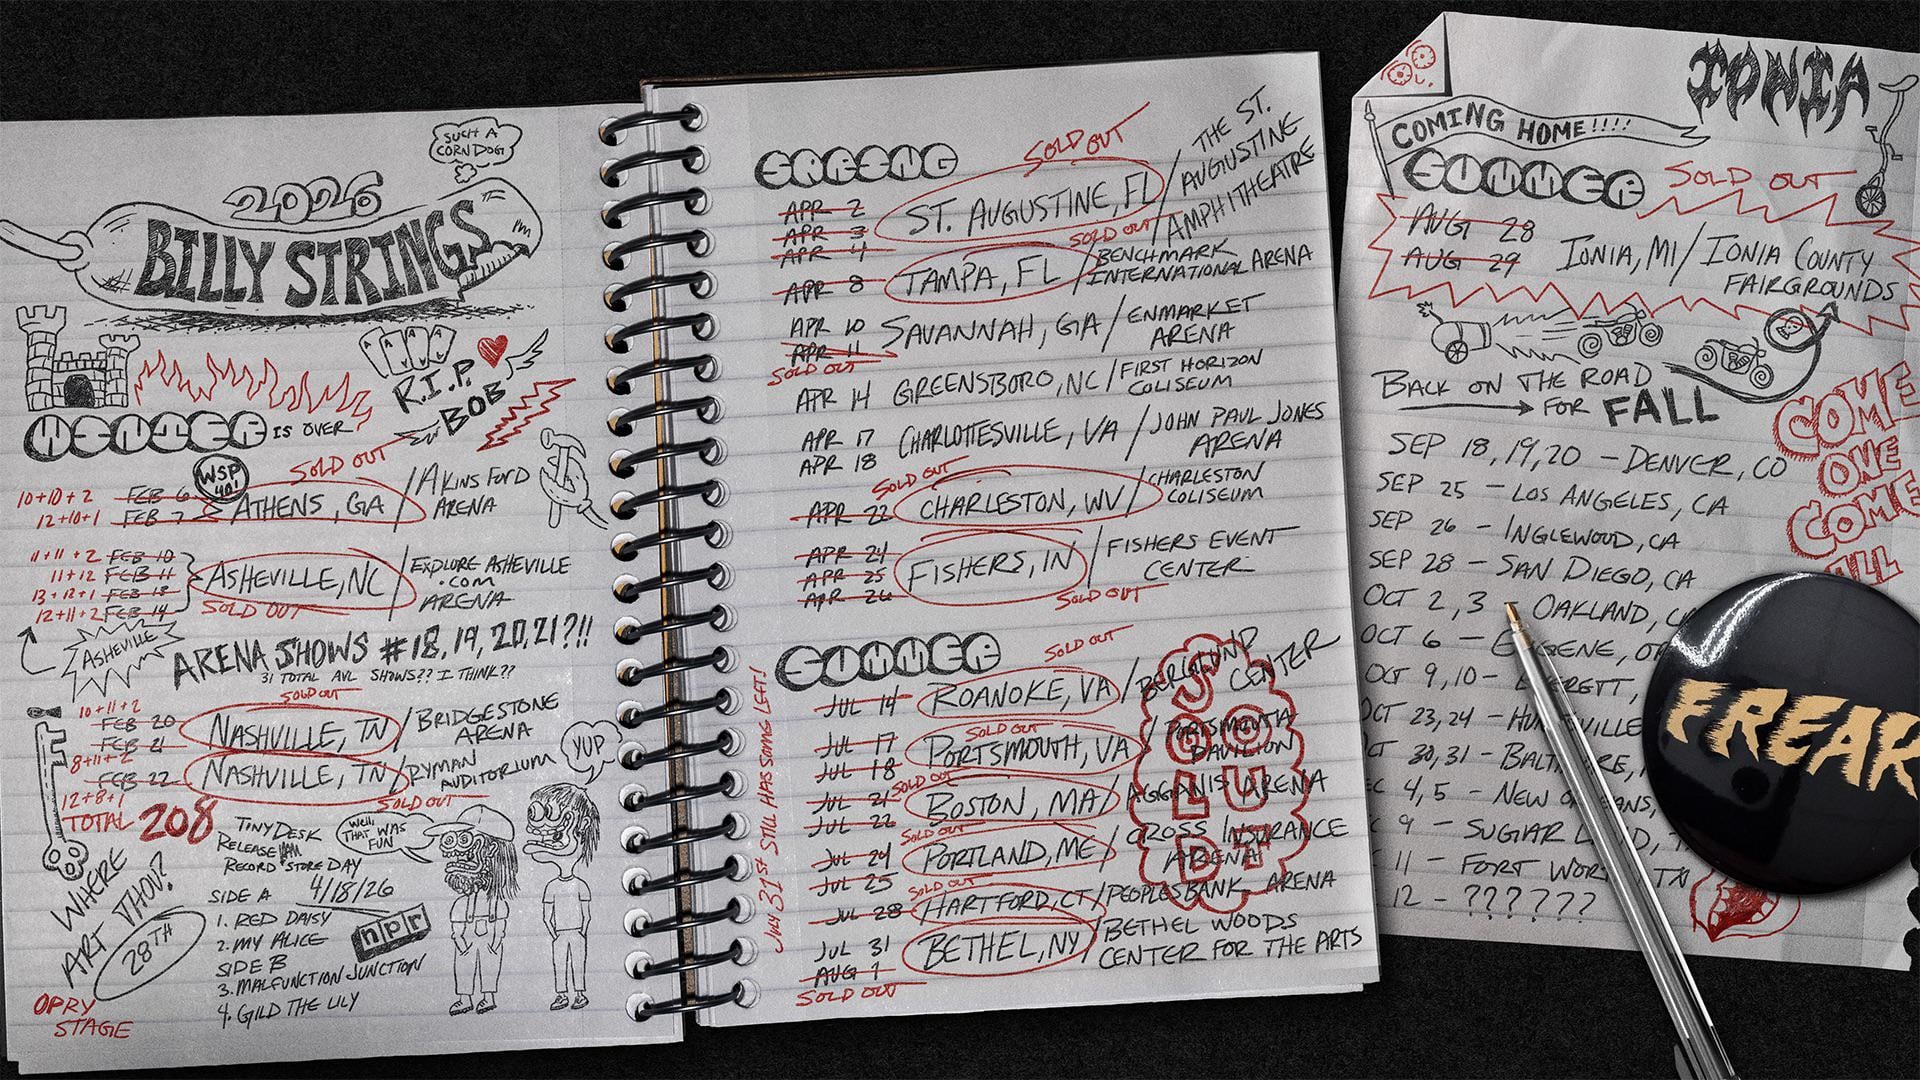 SUCH A
CORN DOG
2026
BILLY STRINGS
R.I.P.
BOB
WINTER IS OVER
SOLD OUT
WSP
40!
10+10+2 FEB 6
12+10+1 FEB 7
ATHENS, GA / AKINS FORD
ARENA
11+11+2 FEB 10
11+12 FEB 11
13+12+1 FEB 13
12+11+2 FEB 14
ASHEVILLE, NC / EXPLORE ASHEVILLE
.COM
ARENA
SOLD OUT
ASHEVILLE
ARENA SHOWS #18, 19, 20, 21?!!
31 TOTAL AVL SHOWS?? I THINK??
SOLD OUT
10+11+2
FEB 20
FEB 21
NASHVILLE, TN / BRIDGESTONE
ARENA
8+11+2
FEB 22 NASHVILLE, TN / RYMAN
AUDITORIUM
SOLD OUT
12+8+1
TOTAL 208
YUP
WELL,
THAT WAS
FUN
WHERE
ART THOU?
28TH
OPRY
STAGE
TINY DESK
RELEASE
RECORD STORE DAY
4/18/26
SIDE A
1. RED DAISY
2. MY ALICE
SIDE B
3. MALFUNCTION JUNCTION
4. GILD THE LILY
npr
SPRING
SOLD OUT
APR 2
APR 3
APR 4
ST. AUGUSTINE, FL / THE ST.
AUGUSTINE
AMPHITHEATRE
SOLD OUT
APR 8 TAMPA, FL / BENCHMARK
INTERNATIONAL ARENA
APR 10
APR 11
SAVANNAH, GA / ENMARKET
ARENA
SOLD OUT
APR 14 GREENSBORO, NC / FIRST HORIZON
COLISEUM
APR 17
APR 18
CHARLOTTESVILLE, VA / JOHN PAUL JONES
ARENA
SOLD OUT
APR 22 CHARLESTON, WV / CHARLESTON
COLISEUM
APR 24
APR 25
APR 26
FISHERS, IN / FISHERS EVENT
CENTER
SOLD OUT
SUMMER
SOLD OUT
JUL 14 ROANOKE, VA / BERGLUND
CENTER
SOLD OUT
JUL 17
JUL 18
PORTSMOUTH, VA / PORTSMOUTH
PAVILION
SOLD OUT
JUL 21
JUL 22
BOSTON, MA / AGGANIS ARENA
SOLD OUT
JUL 24
JUL 25
PORTLAND, ME / CROSS INSURANCE
ARENA
SOLD OUT
JUL 28 HARTFORD, CT / PEOPLESBANK ARENA
JUL 31
AUG 1
BETHEL, NY / BETHEL WOODS
CENTER FOR THE ARTS
SOLD OUT
JULY 31ST STILL HAS SOME LEFT!
SOLD OUT
IONIA
COMING HOME!!!!
SUMMER
SOLD OUT
AUGT 28
AUG 29
IONIA, MI / IONIA COUNTY
FAIRGROUNDS
BACK ON THE ROAD
FOR FALL
COME
ONE
COME
ALL
SEP 18, 19, 20 - DENVER, CO
SEP 25 - LOS ANGELES, CA
SEP 26 - INGLEWOOD, CA
SEP 28 - SAN DIEGO, CA
OCT 2, 3 - OAKLAND, C
OCT 6 - EUGENE, OR
OCT 9, 10 - EVERETT,
OCT 23, 24 - HUNTSVILLE
OCT 30, 31 - BALTIMORE,
EC 4, 5 - NEW ORLEANS,
C 9 - SUGAR LAND, T
11 - FORT WORTH, TX
12 - ??????
FREAK